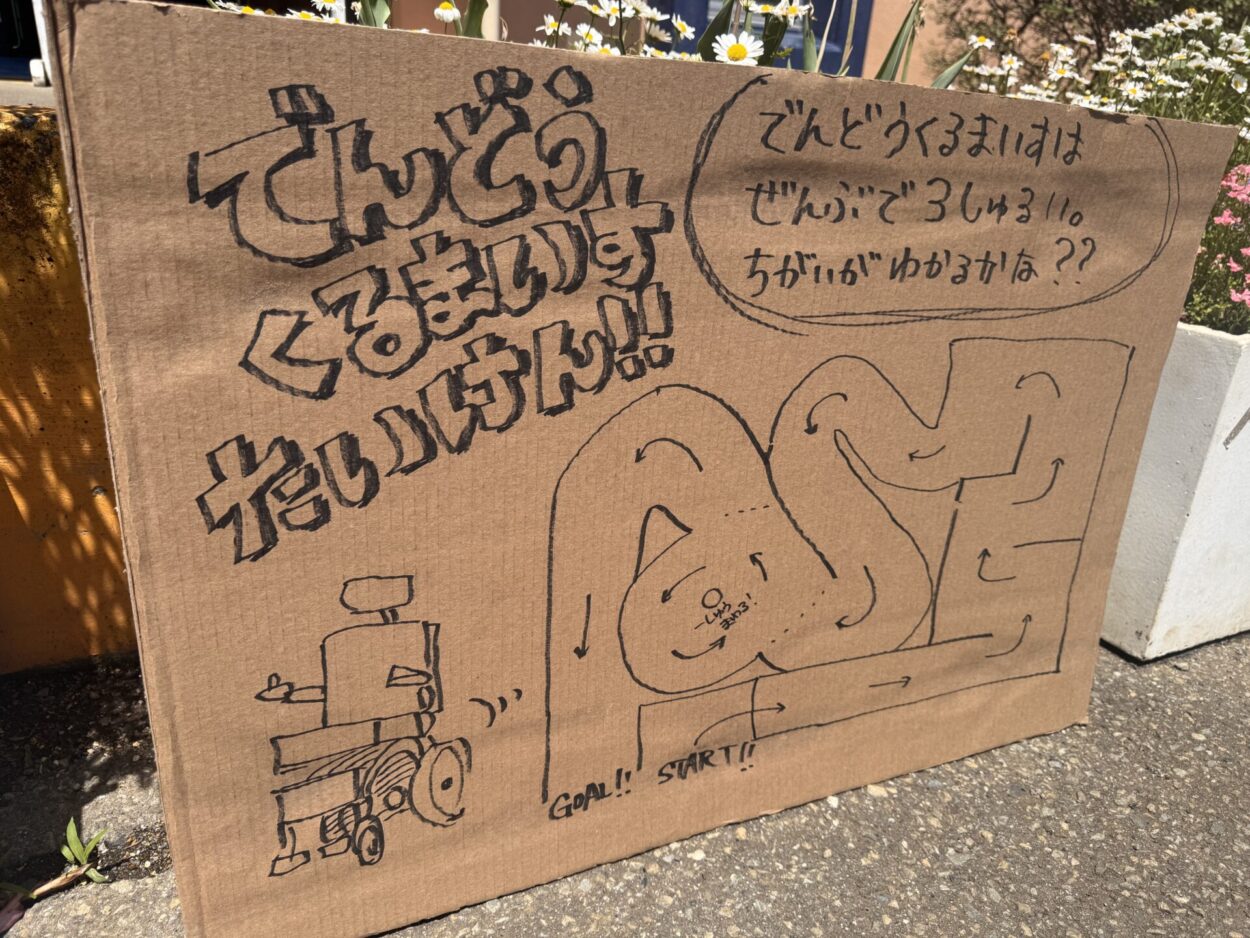 でんどう
くるまいす
たいけん!!
でんどうくるまいすは
ぜんぶで3しゅるい。
ちがいがわかるかな??
一しゅう
まわる!
GOAL!! START!!